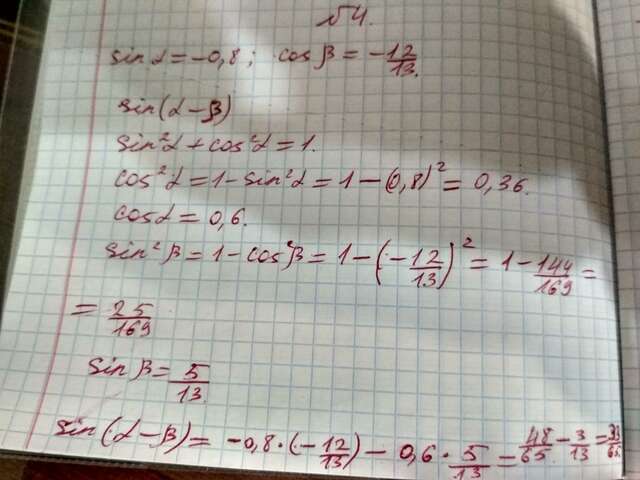 №4.
sin α = -0,8; cos β = -12/13.
sin(α - β)
sin²α + cos²α = 1.
cos²α = 1 - sin²α = 1 - (0,8)² = 0,36.
cos α = 0,6.
sin²β = 1 - cos²β = 1 - (-12/13)² = 1 - 144/169 =
= 25/169
sin β = 5/13.
sin(α - β) = -0,8 · (-12/13) - 0,6 · 5/13 = 48/65 - 3/13 = 33/65